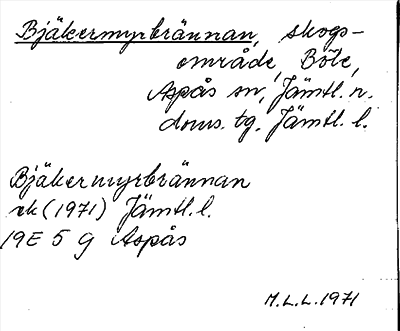 Bjäkermyrbrännan, skogs-
område, Böle,
Aspås sn, Jämtl. n.
doms. tg. Jämtl. l.
Bjäkermyrbrännan
ek (1971) Jämtl. l.
19E 5 g Aspås
M.L.L. 1971